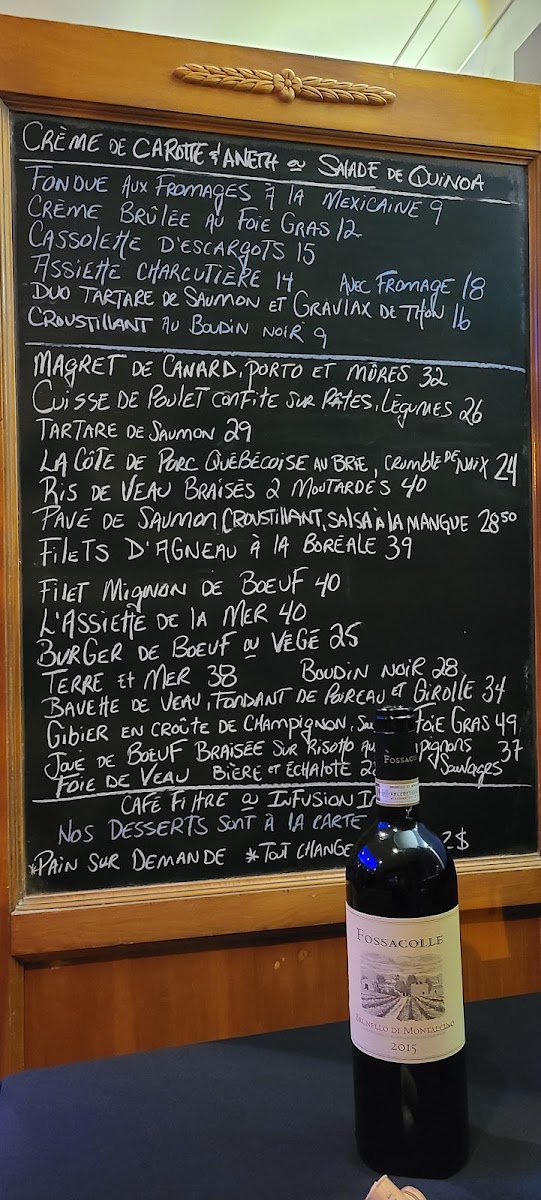 CRÈME DE CAROTTE & ANETH OU SALADE DE QUINOA
FONDUE AUX FROMAGES À LA MEXICAINE 9
CRÈME BRÛLÉE AU FOIE GRAS 12
CASSOLETTE D'ESCARGOTS 15
ASSIETTE CHARCUTIÈRE 14 AVEC FROMAGE 18
DUO TARTARE DE SAUMON ET GRAVLAX DE THON 16
CROUSTILLANT AU BOUDIN NOIR 9
MAGRET DE CANARD, PORTO ET MÛRES 32
CUISSE DE POULET CONFITE SUR PÂTES, LÉGUMES 26
TARTARE DE SAUMON 29
LA CÔTE DE PORC QUÉBÉCOISE AU BRIE, CRUMBLE DE NOIX 24
RIS DE VEAU BRAISÉS 2 MOUTARDES 40
PAVÉ DE SAUMON CROUSTILLANT, SALSA À LA MANGUE 28 50
FILETS D'AGNEAU À LA BORÉALE 39
FILET MIGNON DE BOEUF 40
L'ASSIETTE DE LA MER 40
BURGER DE BOEUF OU VÉGÉ 25
TERRE ET MER 38 BOUDIN NOIR 28
BAVETTE DE VEAU, FONDANT DE POIREAU ET GIROLLE 34
GIBIER EN CROÛTE DE CHAMPIGNON, FOIE GRAS 49
JOUE DE BOEUF BRAISÉE SUR RISOTTO 37
FOIE DE VEAU BIÈRE ET ÉCHALOTE SAUVAGES
CAFÉ FILTRE OU INFUSION
NOS DESSERTS SONT À LA CARTE
*PAIN SUR DEMANDE *TOUT CHANGE 2$
FOSSACOLLE
BRUNELLO DI MONTALCINO
2015